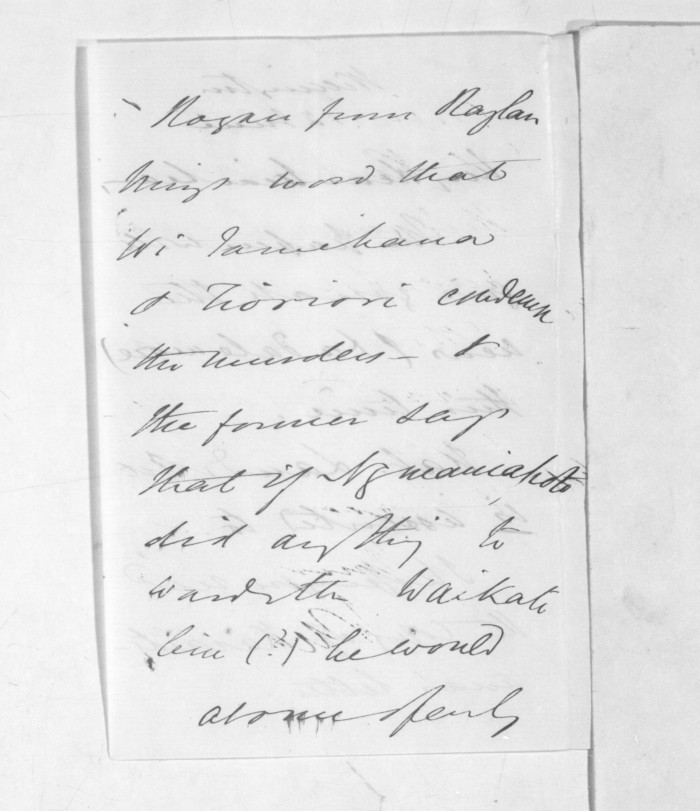 Rogan from Raglan
brings word that
Wi Tamehana
& Tioriori condemn
the murders - &
the former says
that if Ngmaniapoto
did anything to
wards the Waikato
line (?) he would
at once openly